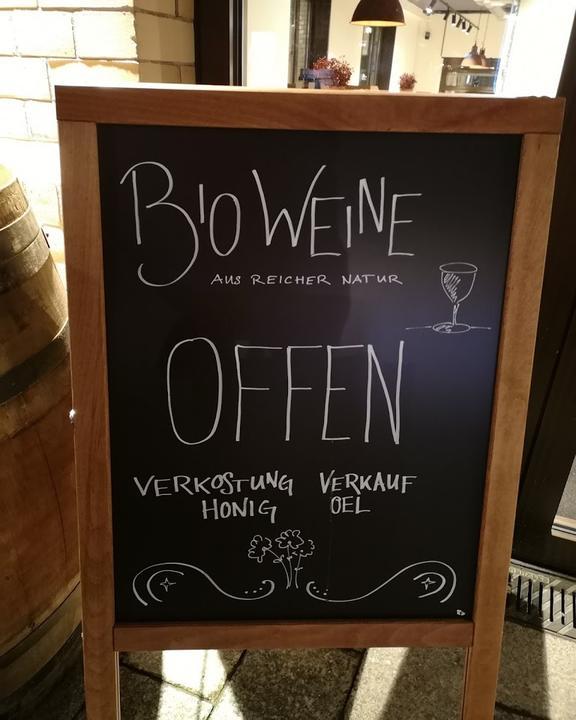 BIO WEINE
AUS REICHER NATUR
OFFEN
VERKOSTUNG VERKAUF
HONIG OEL